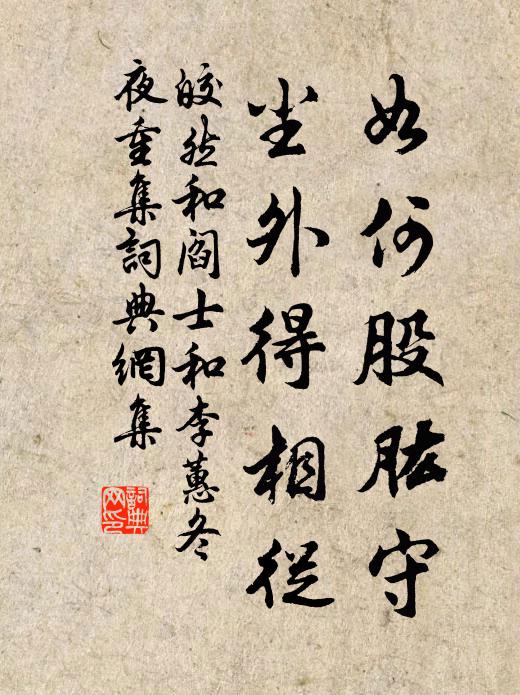 如何股肱守
尘外得相从
皎然和阎士和李蕙冬
夜重集詞典網集
詞典网印